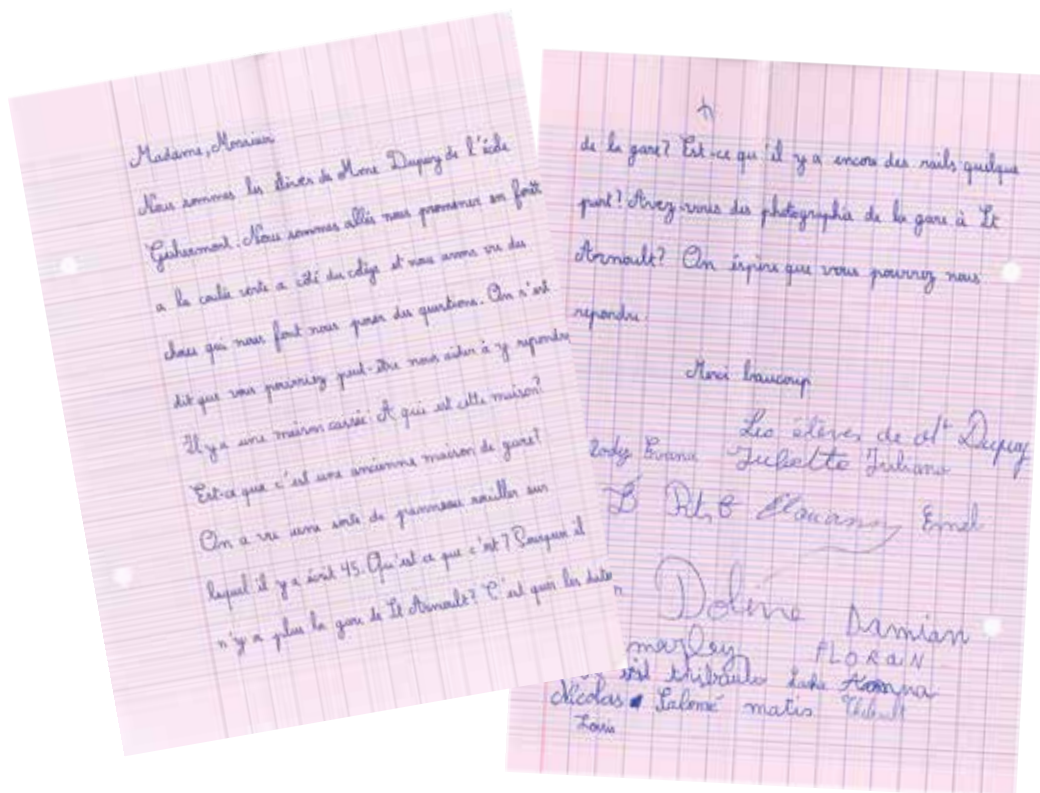 Madame, Monsieur
Nous sommes les élèves de Mme Dupuy de l'école
Guhermont. Nous sommes allés nous promener en forêt
a la coulée verte a côté du collège et nous avons vu des
choses qui nous font nous poser des questions. On s'est
dit que vous pourriez peut-être nous aider à y repondre
Il y a une maison cassée. A qui est cette maison?
Est-ce que c'est une ancienne maison de gare?
On a vu une sorte de panneau rouiller sur
lequel il y a écrit 45. Qu'est ce que c'est? Pourquoi il
n'y a plus la gare de St Arnoult? C'est quoi les dates
de la gare? Est-ce qu'il y a encore des rails quelque
part? Avez-vous des photographie de la gare à St
Arnoult? On éspère que vous pourrez nous
repondre.
Merci beaucoup
Les élèves de Mme Dupuy
Rody Evana Juliette Juliano
Emel
Dolène Damian
marley FLORAN
thibault Luka
Nicolas Salomé matis Thibault
Louis